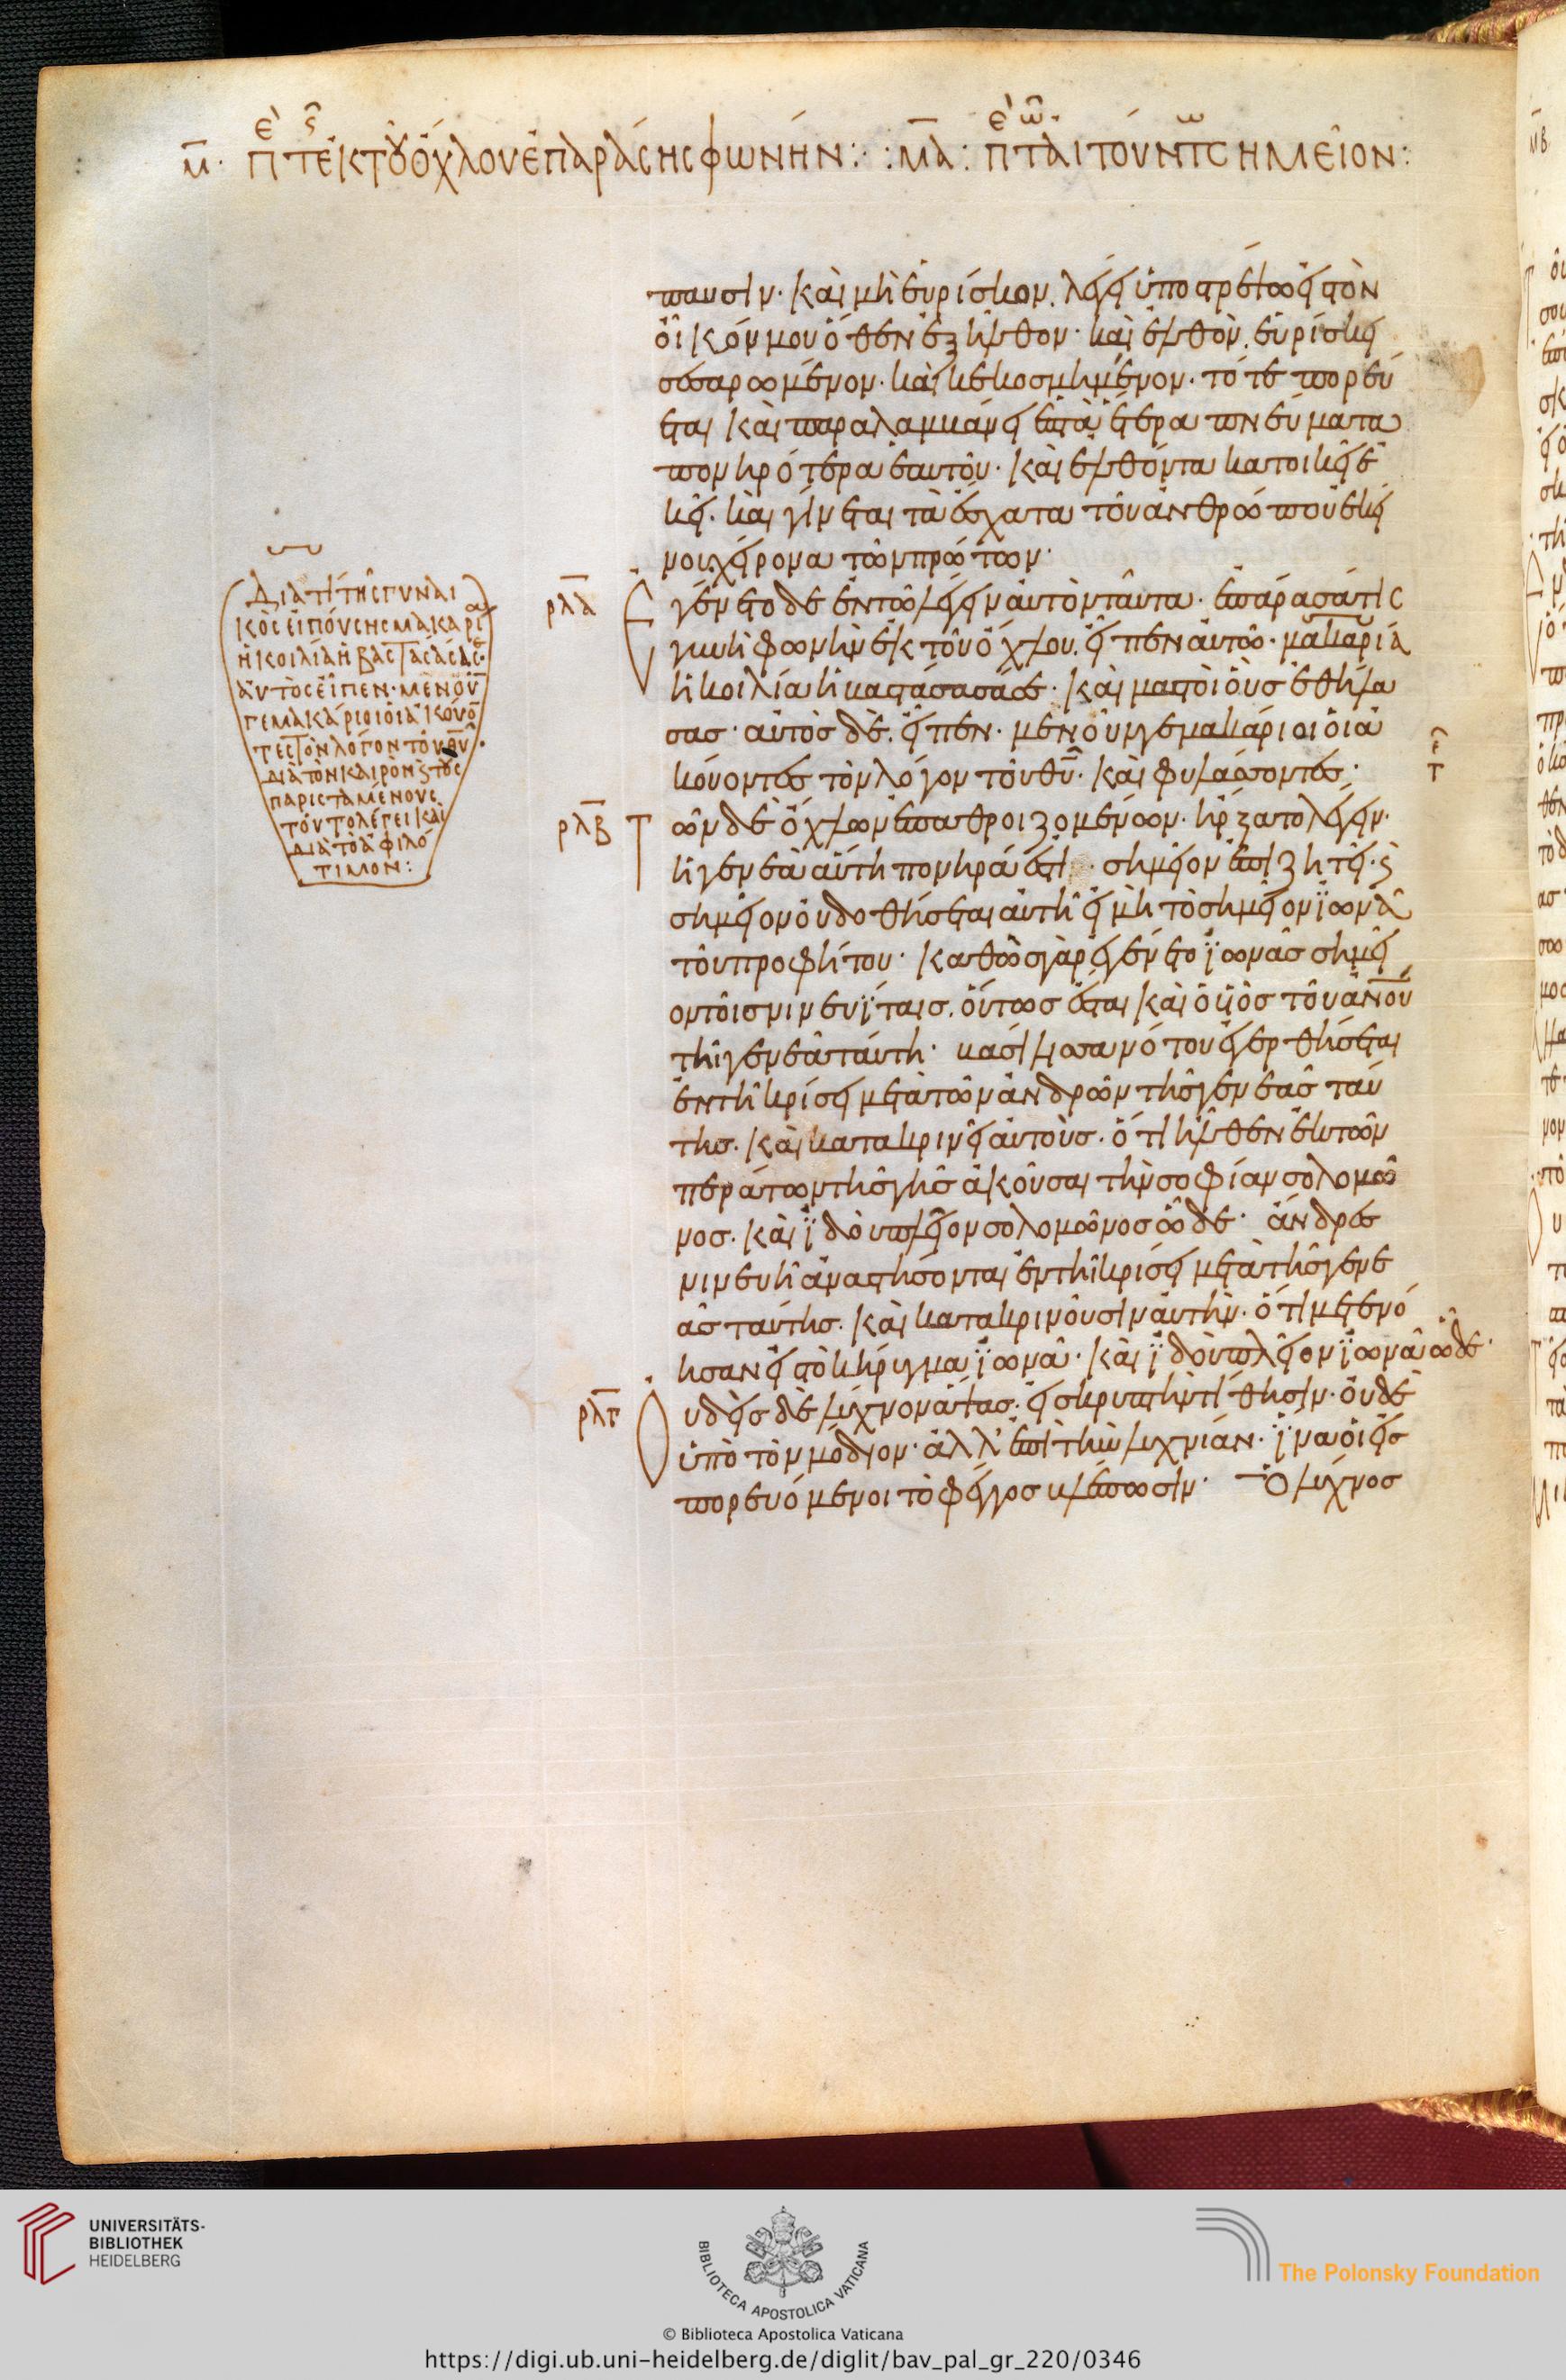 μ· πε τς ἐκ τοῦ ὄχλου ἐπαράσης φωνήν: :μα: πε τω αἰτούντω σημεῖον:
παυσιν· καὶ μὴ εὑρίσκον. λέγει ὑποστρέψω εἰς τὸν
οἶκόν μου ὅθεν ἐξῆλθον· καὶ ἐλθὸν. εὑρίσκει
σεσαρωμένον· καὶ κεκοσμημένον· τότε πορεύ
εται καὶ παραλαμβάνει ἑπτὰ ἕτερα πνεύματα
πονηρότερα ἑαυτοῦ· καὶ ἐλθόντα κατοικεῖ ἐ
κεῖ. καὶ γίνεται τὰ ἔσχατα τοῦ ἀνθρώπου ἐκεί
νου χείρονα τῶν πρώτων·
ρλα Ἐγένετο δὲ ἐν τῷ λέγειν αὐτὸν ταῦτα· ἐπάρασά τις
γυνὴ φωνὴν ἐκ τοῦ ὄχλου. εἶπεν αὐτῷ· μακαρία
ἡ κοιλία ἡ βαστάσασά σε· καὶ μαστοὶ οὓς ἐθήλα
σας· αὐτὸς δὲ. εἶπεν· μενοῦνγε μακάριοι οἱ ἀ
κούοντες τὸν λόγον τοῦ θῦ· καὶ φυλάσσοντες·
ρλβ Τῶν δὲ ὄχλων ἐπαθροιζομένων· ἤρξατο λέγειν·
ἡ γενεὰ αὕτη πονηρά ἐστι· σημεῖον ἐπιζητεῖ· ϛ
σημεῖον οὐ δοθήσεται αὐτῇ εἰ μὴ τὸ σημεῖον ϊωνᾶ
τοῦ προφήτου· καθὼς γὰρ ἐγένετο ϊωνᾶς σημεῖ
ον τοῖς νινευΐταις. οὕτως ἔσται καὶ ὁ υἱὸς τοῦ ἀνου
τῇ γενεᾷ ταύτη· βασίλισσα νότου ἐγερθήσεται
ἐν τῇ κρίσει μετὰ τῶν ἀνδρῶν τῆς γενεᾶς ταύ
της. καὶ κατακρινεῖ αὐτούς. ὅτι ἦλθεν ἐκ τῶν
περάτων τῆς γῆς ἀκοῦσαι τὴν σοφίαν σολομῶ
νος. καὶ ϊδοὺ πλεῖον σολομῶνος ὧδε· ἄνδρες
νινευῆ ἀναστήσονται ἐν τῇ κρίσει μετὰ τῆς γενε
ᾶς ταύτης. καὶ κατακρινοῦσιν αὐτήν. ὅτι μετενό
ησαν εἰς τὸ κήρυγμα ϊωνᾶ· καὶ ϊδοὺ πλεῖον ϊωνᾶ ὧδε·
ρλγ Οὐδεὶς δὲ λύχνον ἅψας· εἰς κρυπτὴν τίθησιν· οὐδὲ
ὑπὸ τὸν μόδιον· ἀλλ' ἐπὶ τὴν λυχνίαν· ἵνα οἱ εἰς
πορευόμενοι τὸ φέγγος βλέπωσιν· Ὁ λύχνος
Διατί τῆς γυναι
κὸς εἰπούσης μακαρία
ἡ κοιλία ἡ βαστάσασά σε·
αὐτὸς εἶπεν· μενοῦν
γε μακάριοι οἱ ἀκούο
τες τὸν λόγον τοῦ θῦ·
διὰ τὸν καιρὸν ϛ τοὺς
παρισταμένους
τοῦτο λέγει καὶ
διὰ τὸ ἀφιλό
τιμον:
UNIVERSITÄTS-
BIBLIOTHEK
HEIDELBERG
BIBLIOTECA APOSTOLICA VATICANA
The Polonsky Foundation
© Biblioteca Apostolica Vaticana
https://digi.ub.uni-heidelberg.de/diglit/bav_pal_gr_220/0346